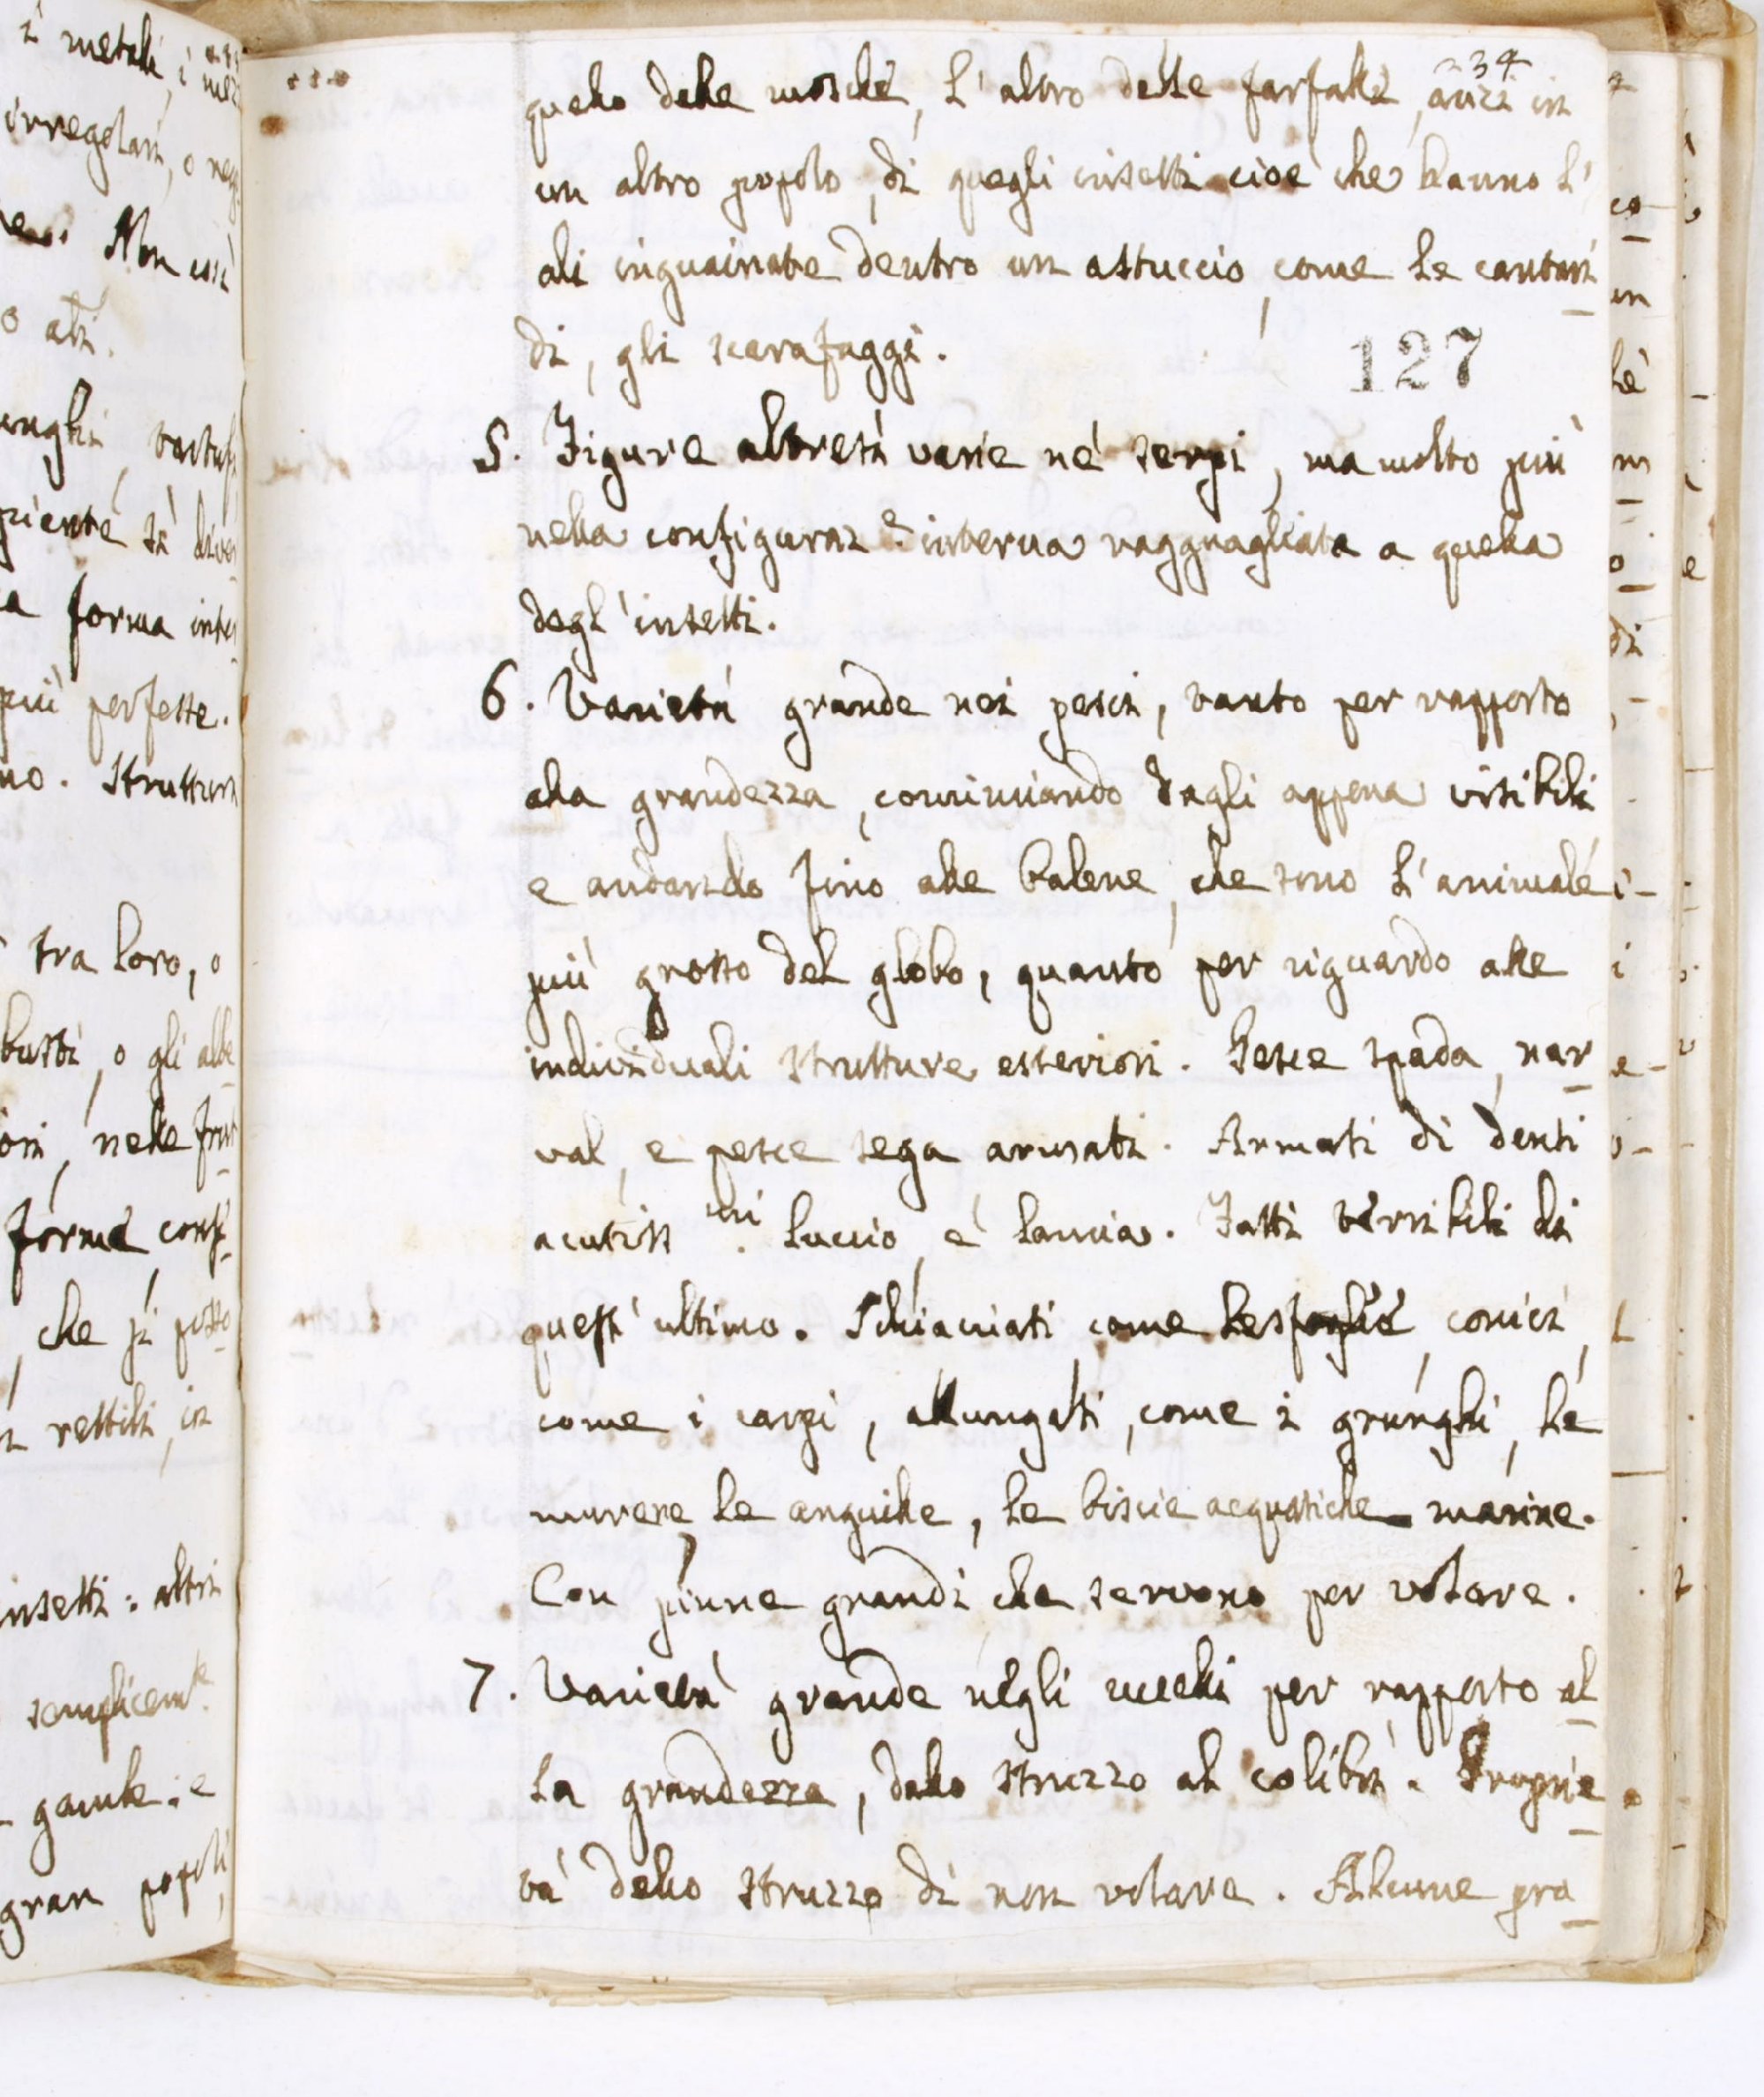 34
quello delle mosche, l'altro delle farfalle, anzi in
un altro popolo, di quegli insetti cioè che hanno l'
ali inguainate dentro un astuccio, come le cantari
di, gli scarafaggi.
127
5. Figure altresì varie ne' serpi, ma molto più
nella configuraz.e interna ragguagliata a quella
degl'insetti.
6. Varietà grande nei pesci, tanto per rapporto
alla grandezza, cominciando dagli appena visibili
e andando fino alle balene, che sono l'animale
più grosso del globo, quanto per riguardo alle
individuali strutture esteriori. Pesce spada, nar
val, e pesce sega armati. Armati di denti
acutiss.mi luccio, e lamia. Fatti terribili di
quest'ultimo. Schiacciati come le sfoglie, conici,
come i carpi, allungati, come i grunghi, le
murene, le anguille, le biscie acquatiche marine.
Con pinne grandi che servono per volare.
7. Varietà grande negli uccelli per rapporto al
la grandezza, dallo struzzo al colibrì. Proprie
tà dello struzzo di non volare. Alcune gra
i metalli, i
irregolari, o
Non così
o altri.
forma inter
più perfette.
no. Struttura
tra loro, o
o gli albe
ori, nelle frut
forme, confi
che si posso
rettili, in
insetti: altri
semplicem.te
gambe: e
gran popoli,